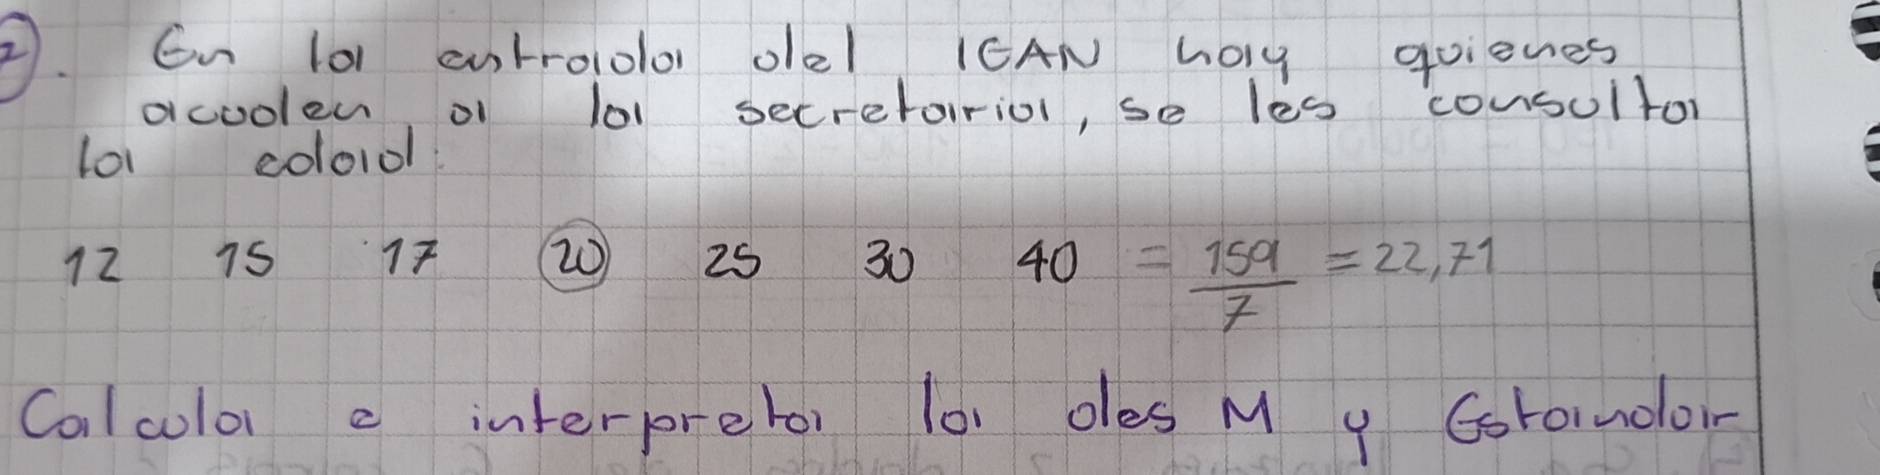 2). En la entrada del IEAN hay quienes
acuden a la secretaria, se les consulta
la edad:
12 15 17 20 25 30 40 = 159/7 = 22,71
Calcula e interpreta la des M y Estandar